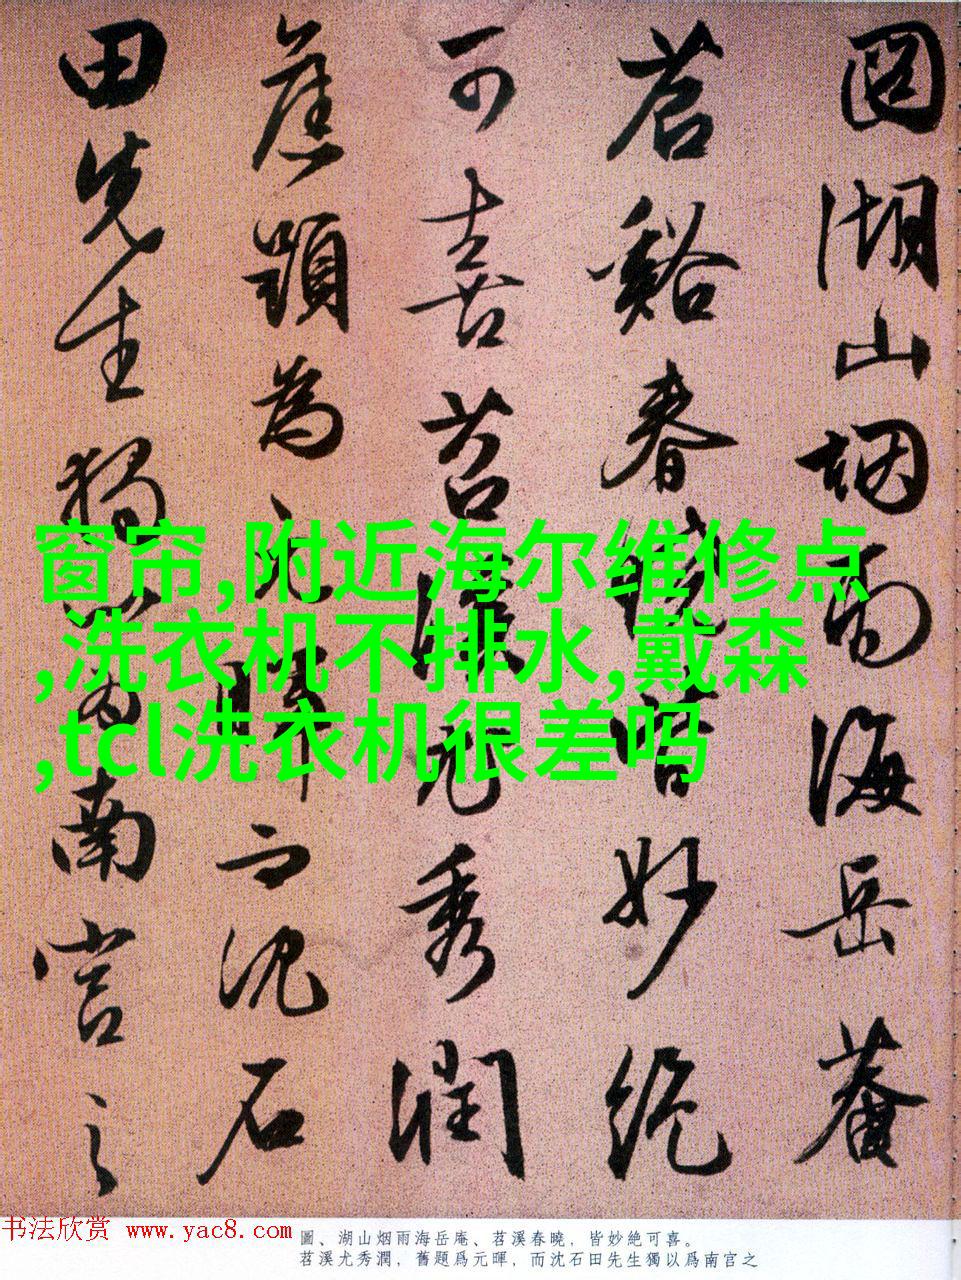 圖湖山烟雨海岳菴
苕谿春曉皆妙絶
可喜苕溪尤秀潤
舊題為元暉而沈石
田先生獨以為南宫之
窗帘,附近海尔维修点
,洗衣机不排水,戴森
,tcl洗衣机很差吗
书法欣赏 www.yac8.com
圖、湖山烟雨海岳庵、苕溪春曉，皆妙絶可喜。
苕溪尤秀潤，舊題爲元暉，而沈石田先生獨以爲南宫之